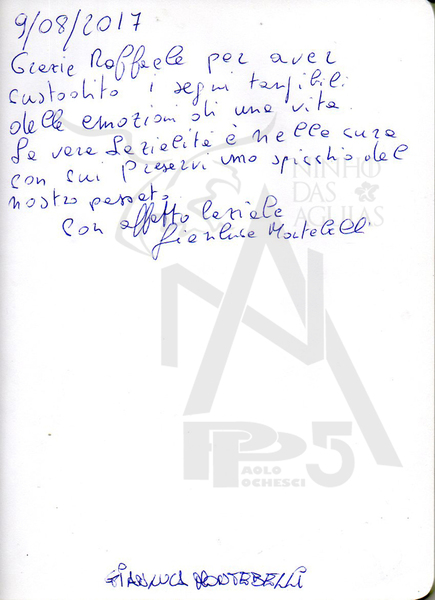 9/08/2017
Grazie Raffaele per aver
custodito i segni tangibili
delle emozioni di una vita.
La vera Lazialità è nella cura
con cui Preservi uno spicchio del
nostro passato
Con affetto Laziale
Gianluca Montebelli
NINHO
DAS
AGUIAS
PP5
PAOLO
POCHESCI
GIANLUCA MONTEBELLI